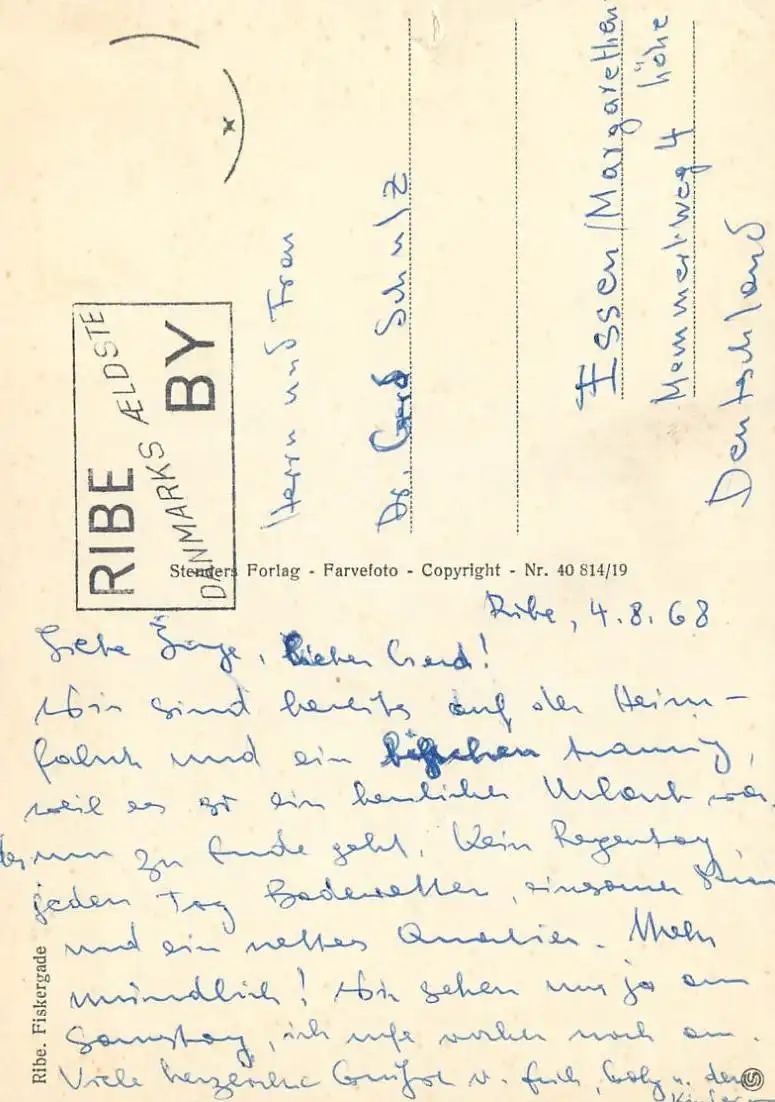 RIBE
DANMARKS ÆLDSTE
BY
Herrn und Frau
Dr. Gerd Schulz
Essen/Margarethen
höhe
4
Deutschland
Stenders Forlag - Farvefoto - Copyright - Nr. 40 814/19
Ribe, 4.8.68
Liebe Inge, lieber Gerd!
Wir sind bereits auf der Heim-
fahrt und ein bißchen traurig,
weil es so ein herrlicher Urlaub war,
der nun zu Ende geht. Kein Regentag,
jeden Tag Badewetter, einsamer
und ein nettes Quartier. Mehr
mündlich! Wir sehen uns ja am
Samstag, ich rufe vorher noch an.
Viele herzliche Grüße v. u. den
Kindern
Ribe. Fiskergade
S